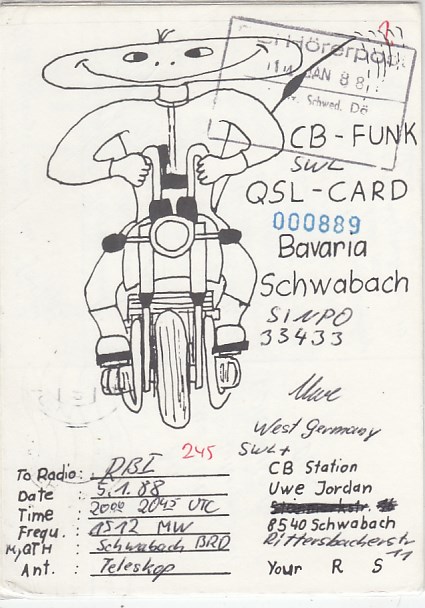 Hörerpost
14. JAN 88
Schwed. Dö
CB-FUNK
SWL
QSL-CARD
000889
Bavaria
Schwabach
SINPO
33433
Uwe
West Germany
SWL +
CB Station
Uwe Jordan
8540 Schwabach
Rittersbacherstr
11
Your R S
245
To Radio: RBI
Date : 5.1.88
Time : 2000 2045 UTC
Frequ. : 1512 MW
My QTH : Schwabach BRD
Ant. : Teleskop